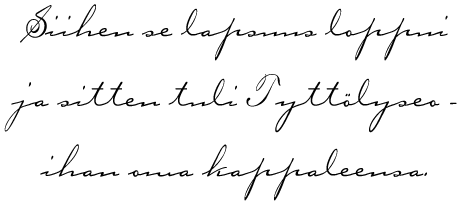 Siihen se lapsuus loppui
ja sitten tuli Tyttölyseo -
ihan oma kappaleensa.